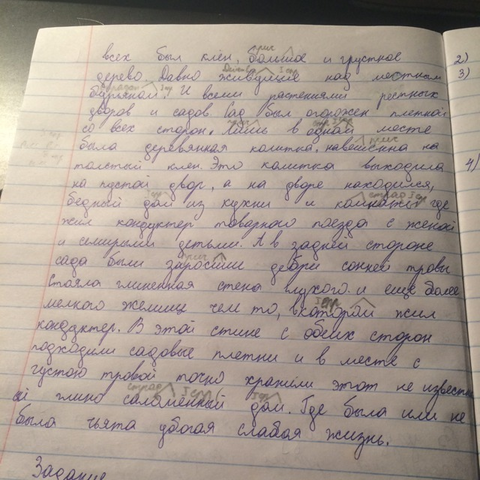 всех был клён, большое и грустное
дерево. Давно живущие над местным
И всеми растениями речных
дворов и садов. Сад был огорожен плетнём
со всех сторон. Лишь в одном месте
была деревянная калитка, навешенная на
толстый клён. Эта калитка выходила
на пустой двор, а на дворе находился,
бедный дом из кухни и комнаты где
жил кондуктор товарного поезда с женой
и смирными детьми. А в задней стороне
сада были заросшие дебри сонней травы
стояла глиненая стена глухого и еще более
мелкого жилища чем то, в котором жил
кондуктор. В этой стине с обеих сторон
подходили садовые плетни и в месте с
густою травой точно хранили этот не извест
глино соломенный дом. Где была или не
была чьята убогая слабая жизнь.
Задание
2)
3)
4)